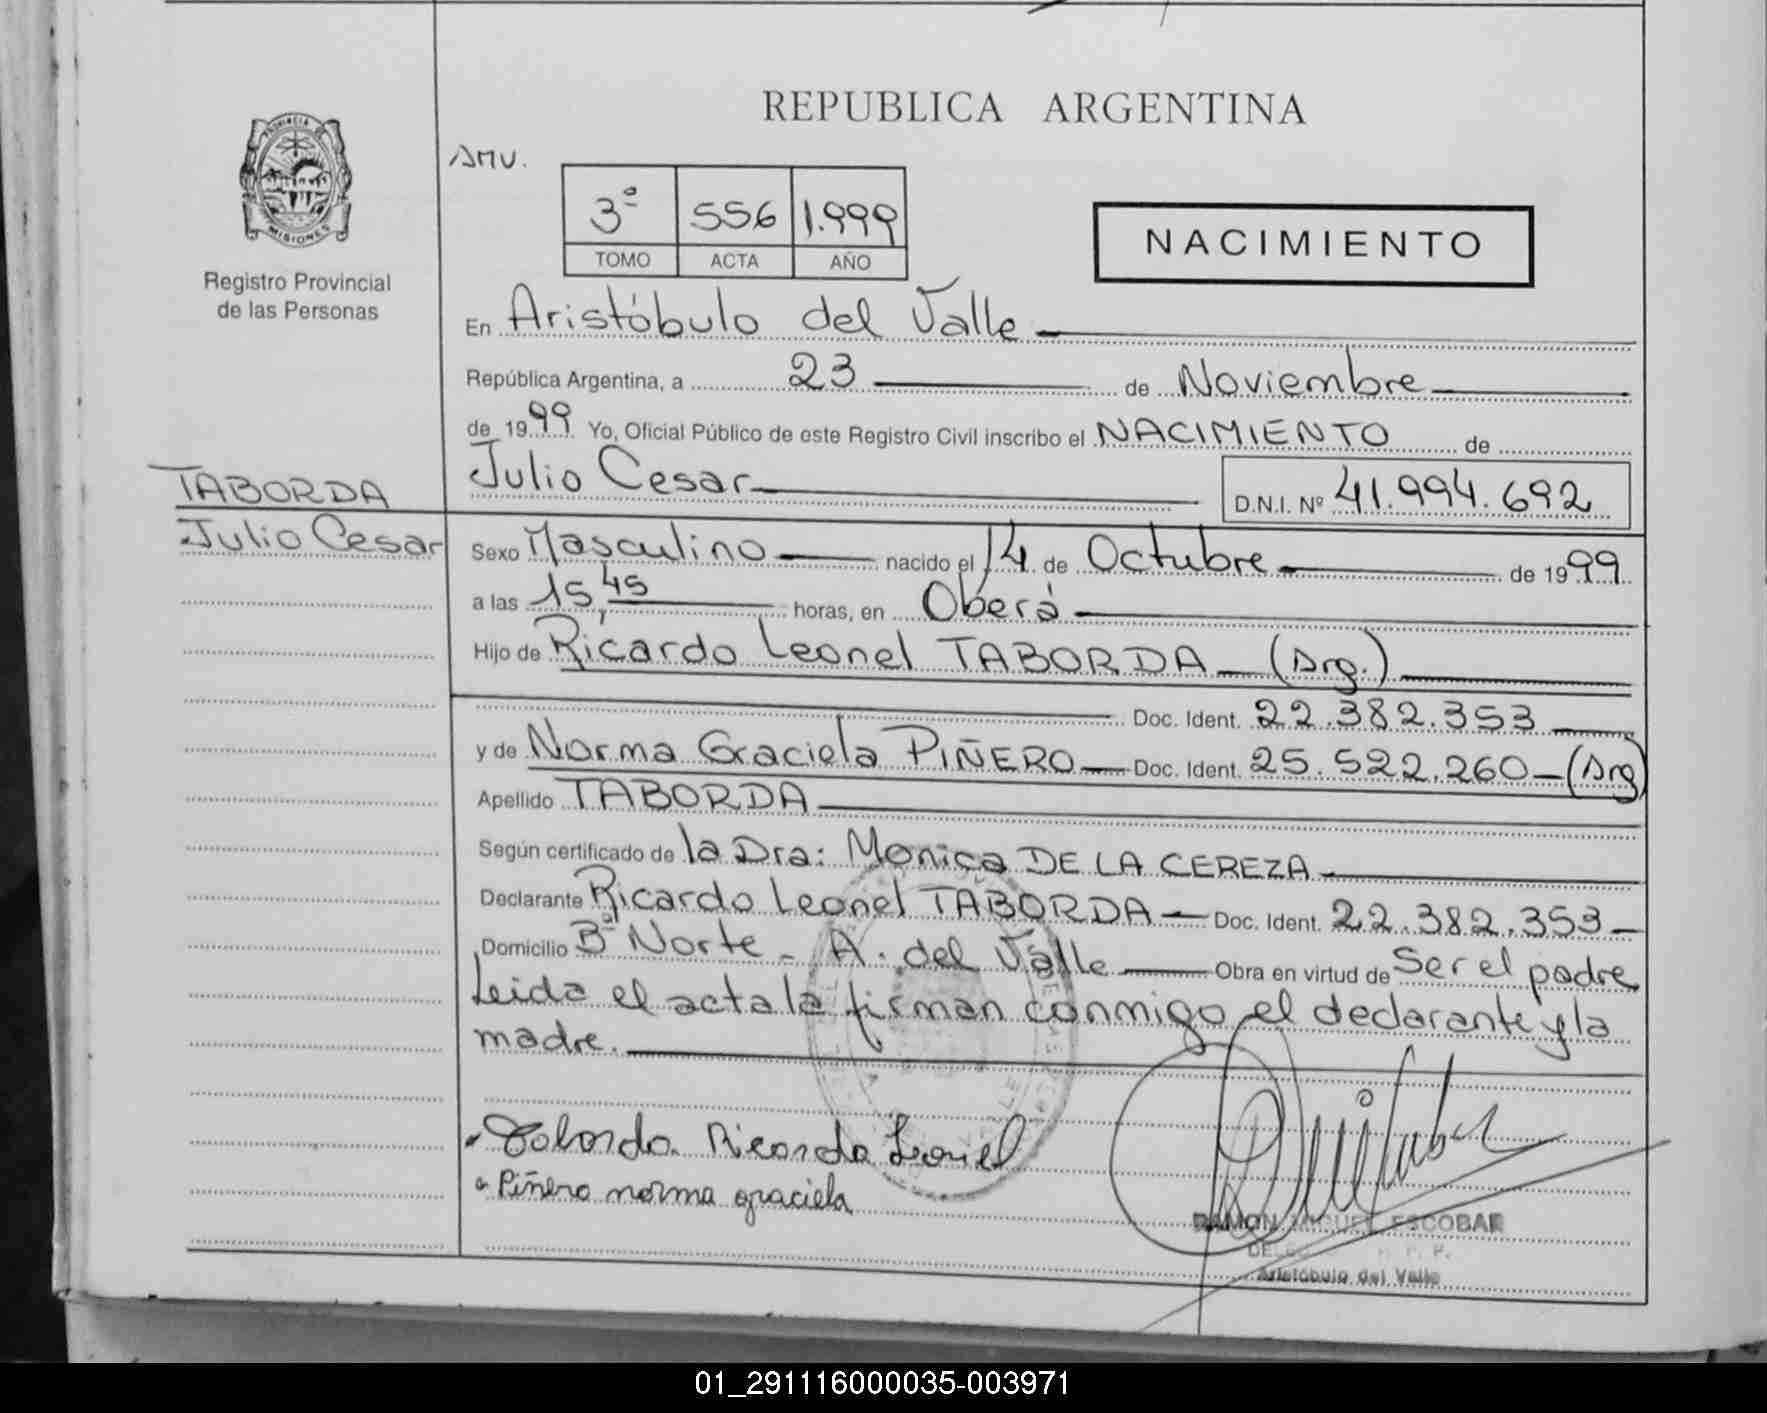 REPUBLICA ARGENTINA
AMV.
PROVINCIA DE
MISIONES
Registro Provincial
de las Personas
3º 556 1.999
TOMO ACTA AÑO
NACIMIENTO
En Aristóbulo del Valle
República Argentina, a 23 de Noviembre
de 1999 Yo, Oficial Público de este Registro Civil inscribo el NACIMIENTO de
Julio Cesar D.N.I. Nº 41.994.692
TABORDA
Julio Cesar
Sexo Masculino nacido el 14 de Octubre de 1999
a las 15,45 horas, en Oberá
Hijo de Ricardo Leonel TABORDA (Arg.)
Doc. Ident. 22.382.353
y de Norma Graciela PIÑERO Doc. Ident. 25.522.260 (Arg)
Apellido TABORDA
Según certificado de la Dra: Monica DE LA CEREZA
Declarante Ricardo Leonel TABORDA Doc. Ident. 22.382.353
Domicilio Bº Norte - A. del Valle Obra en virtud de Ser el padre
Leida el acta la firman conmigo el declarante y la
madre.
Taborda Ricardo Leonel
Piñero norma graciela
RAMON MIGUEL ESCOBAR
R. P. P.
Aristóbulo del Valle
01_291116000035-003971